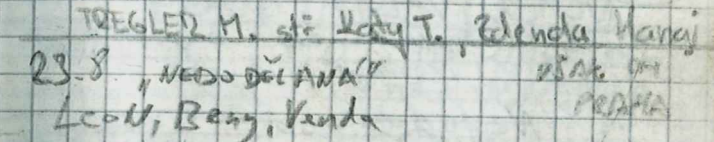 TREGLER M. st. Katy T., Zdenda Hanaj
23.8 „NEDODĚLANÁ"
Leon, Beny, Venda
PRAHA